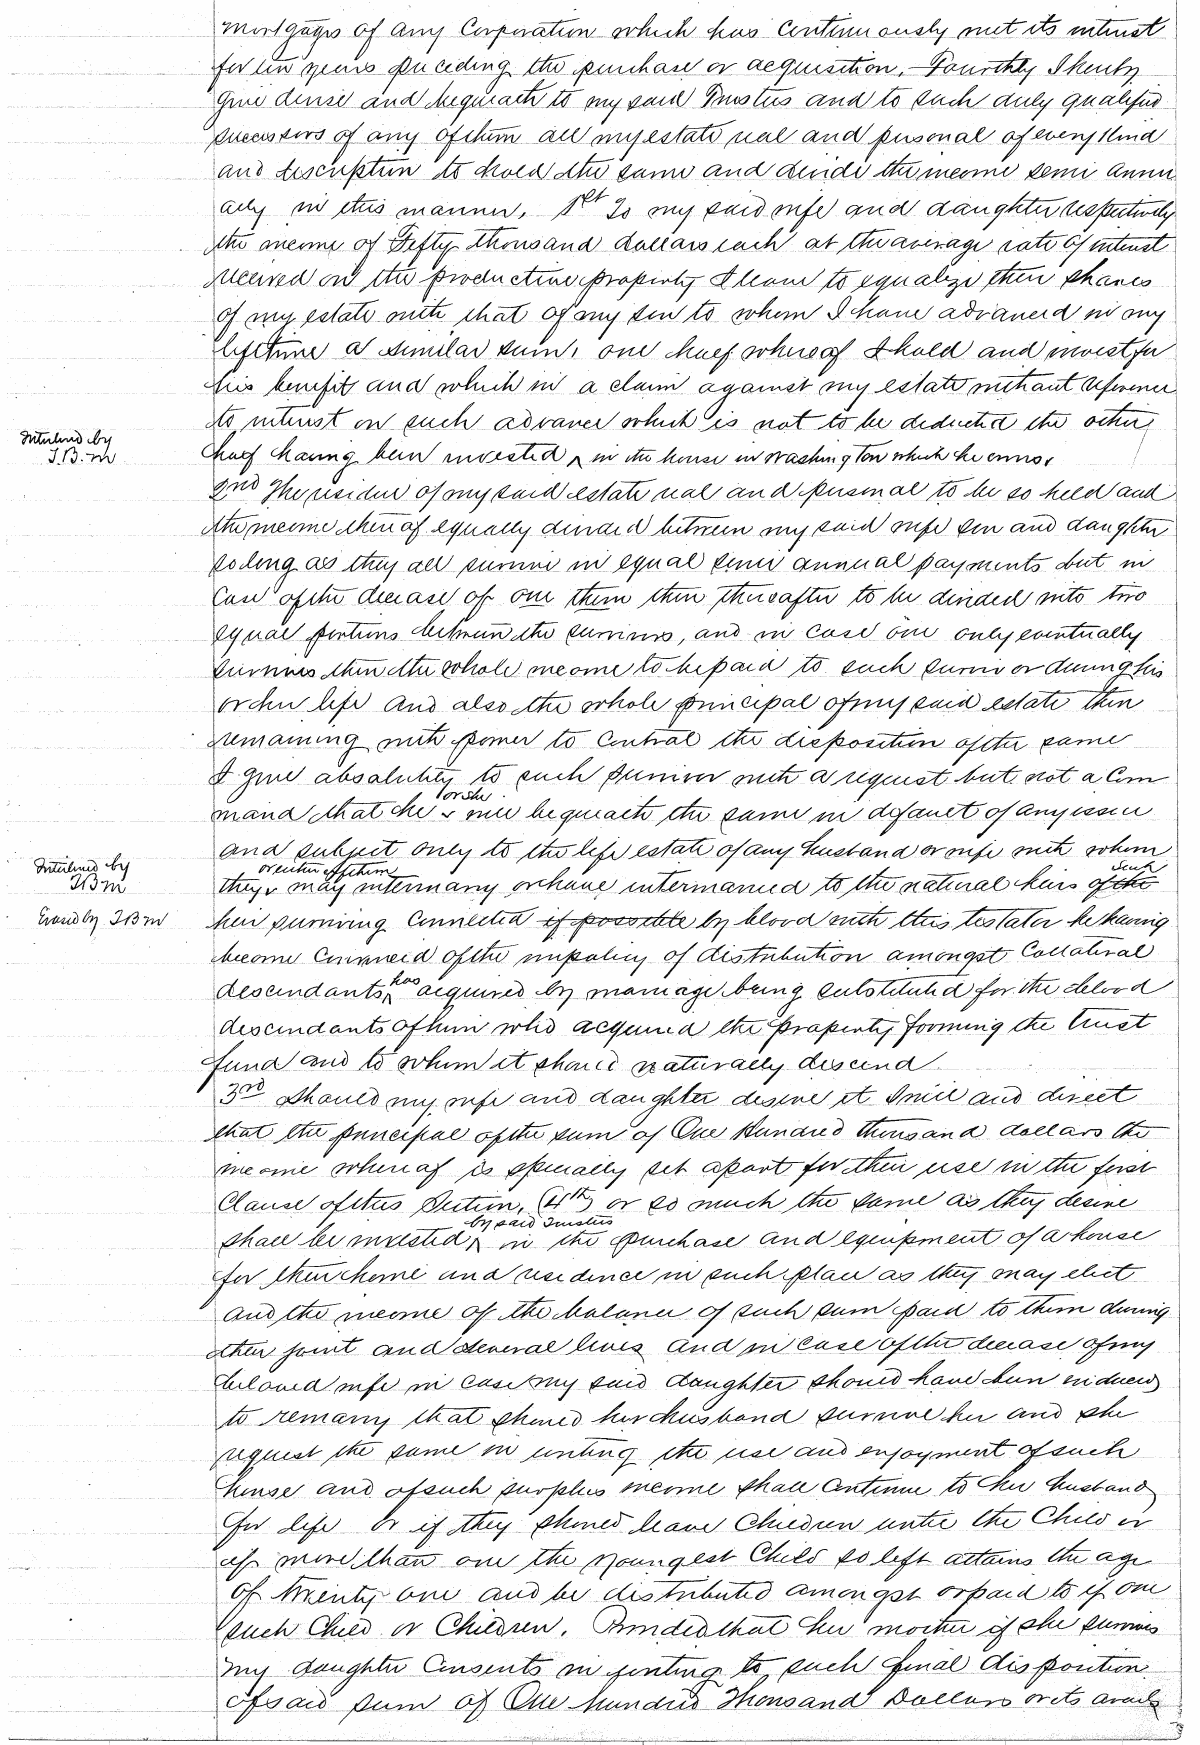 mortgages of any Corporation which has continuously met its interest
for ten years preceding the purchase or acquisition. Fourthly I hereby
give devise and bequeath to my said Trustees and to such duly qualified
successors of any of them all my estate real and personal of every kind
and description to hold the same and divide the income semi annu
ally in this manner. 1st To my said wife and daughter respectively
the income of Fifty thousand dollars each at the average rate of interest
received on the productive property I leave to equalize their shares
of my estate with that of my son to whom I have advanced in my
lifetime a similar sum, one half whereof I hold and invest for
his benefit and which is a claim against my estate without reference
to interest on such advance which is not to be deducted the other
Interlined by
T.B.M
half having been invested ^ in the house in Washington which he owns.
2nd The residue of my said estate real and personal to be so held and
the income thereof equally divided between my said wife son and daughter
so long as they all survive in equal semi annual payments but in
case of the decease of one them then thereafter to be divided into two
equal portions between the survivors, and in case one only eventually
survives then the whole income to be paid to such survivor during his
or her life and also the whole principal of my said estate then
remaining with power to control the disposition of the same
I give absolutely to such survivor with a request but not a Com
or she
mand that he ^ will bequeath the same in default of any issue
and subject only to the life estate of any husband or wife with whom
Interlined by
TBM
or either of them
such
they ^ may intermarry or have intermarried to the natural heirs of the
Erased by TBM
heir surviving connected if possible by blood with this testator he having
become convinced of the impolicy of distribution amongst Collateral
has
descendants ^ acquired by marriage being substituted for the blood
descendants of him who acquired the property forming the trust
fund and to whom it should naturally descend
3rd Should my wife and daughter desire it I will and direct
that the principal of the sum of One Hundred thousand dollars the
income whereof is specially set apart for their use in the first
Clause of this Section, (4th) or so much the same as they desire
by said Trustees
shall be invested ^ in the purchase and equipment of a house
for their home and residence in such place as they may elect
and the income of the balance of such sum paid to them during
their joint and several lives and in case of the decease of my
beloved wife in case my said daughter should have been induced
to remarry that should her husband survive her and she
request the same in writing the use and enjoyment of such
house and of such surplus income shall continue to her husband
for life or if they should leave Children until the Child or
if more than one the youngest Child so left attains the age
of twenty one and be distributed amongst or paid to if one
such Child or Children. Provided that her mother if she survives
my daughter consents in writing to such final disposition
of said sum of One hundred Thousand Dollars or its avails